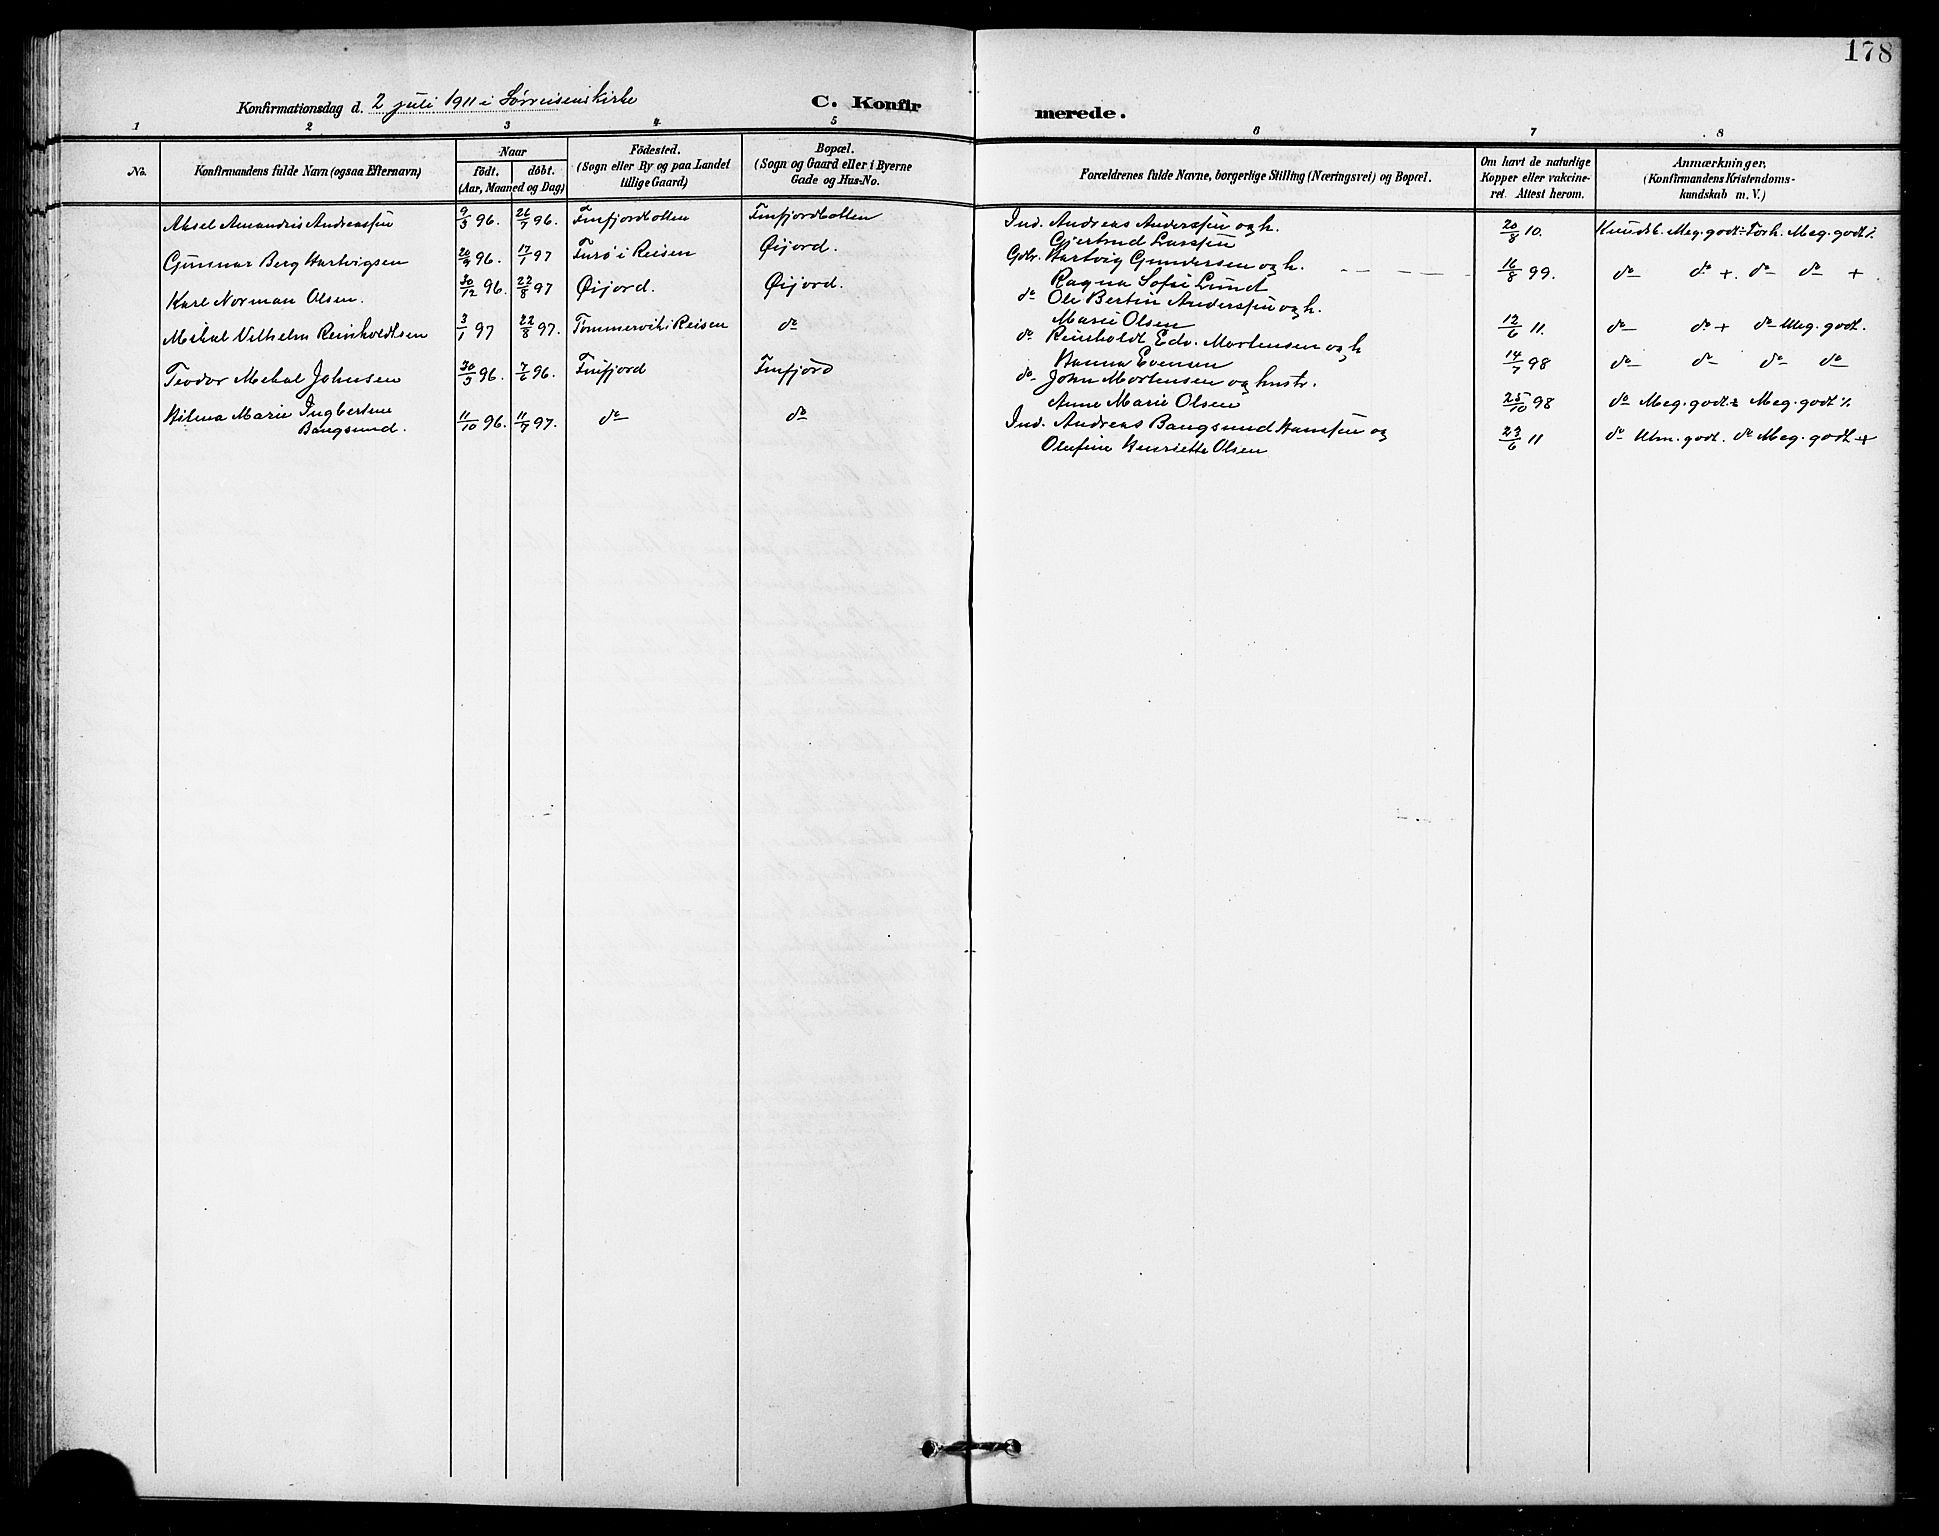 178
Konfirmationsdag d. 2 juli 1911 i Sørreisens kirke
C. Konfirmerede.
1 2 3 4 5 6 7 8
No.
Konfirmandens fulde Navn (ogsaa Efternavn)
Naar
født. døbt.
(Aar, Maaned og Dag)
Fødested.
(Sogn eller By og paa Landet
tillige Gaard)
Bopæl.
(Sogn og Gaard eller i Byerne
Gade og Hus-No.
Forældrenes fulde Navne, borgerlige Stilling (Næringsvei) og Bopæl.
Om havt de naturlige
Kopper eller vakcine-
ret. Attest herom.
Anmærkninger,
(Konfirmandens Kristendoms-
kundskab m. V.)
Aksel Amandris Andreassen 9/3 96. 26/7 96. Finfjordbotten Finfjordbotten Ind. Andreas Anderssen og h. Gjertrud Larssen 20/8 10. Kundsk. Meg. godt Forh. Meg. godt
Gunnar Berg Hartvigsen 20/9 96. 17/1 97 Furø i Reisen Øijord. Gdbr. Hartvig Gundersen og h. Ragna Sofie Lund 16/8 99. do do + do do +
Karl Norman Olsen. 30/12 96. 22/8 97 Øijord. Øijord. do Ole Bertin Anderssen og h. Marie Olsen 12/6 11. do do + do Meg. godt.
Mikal Vilhelm Reinholdtsen 3/1 97 22/8 97. Tømmervik i Reisen do do Reinholdt Edv. Mortensen og h Hanna Evensen 14/7 98 do do do do
Teodor Mikal Johnsen 30/3 96. 7/6 96. Finfjord Finfjord do John Mortensen og hustr. Anne Marie Olsen 25/10 98 do Meg. godt Meg. godt
Hilma Marie Ingbertine Bangsund. 11/10 96. 11/7 97. do do Ind. Andreas Bangsund Hanssen og Olufine Henriette Olsen 23/6 11 do Utm. godt. do Meg. godt +